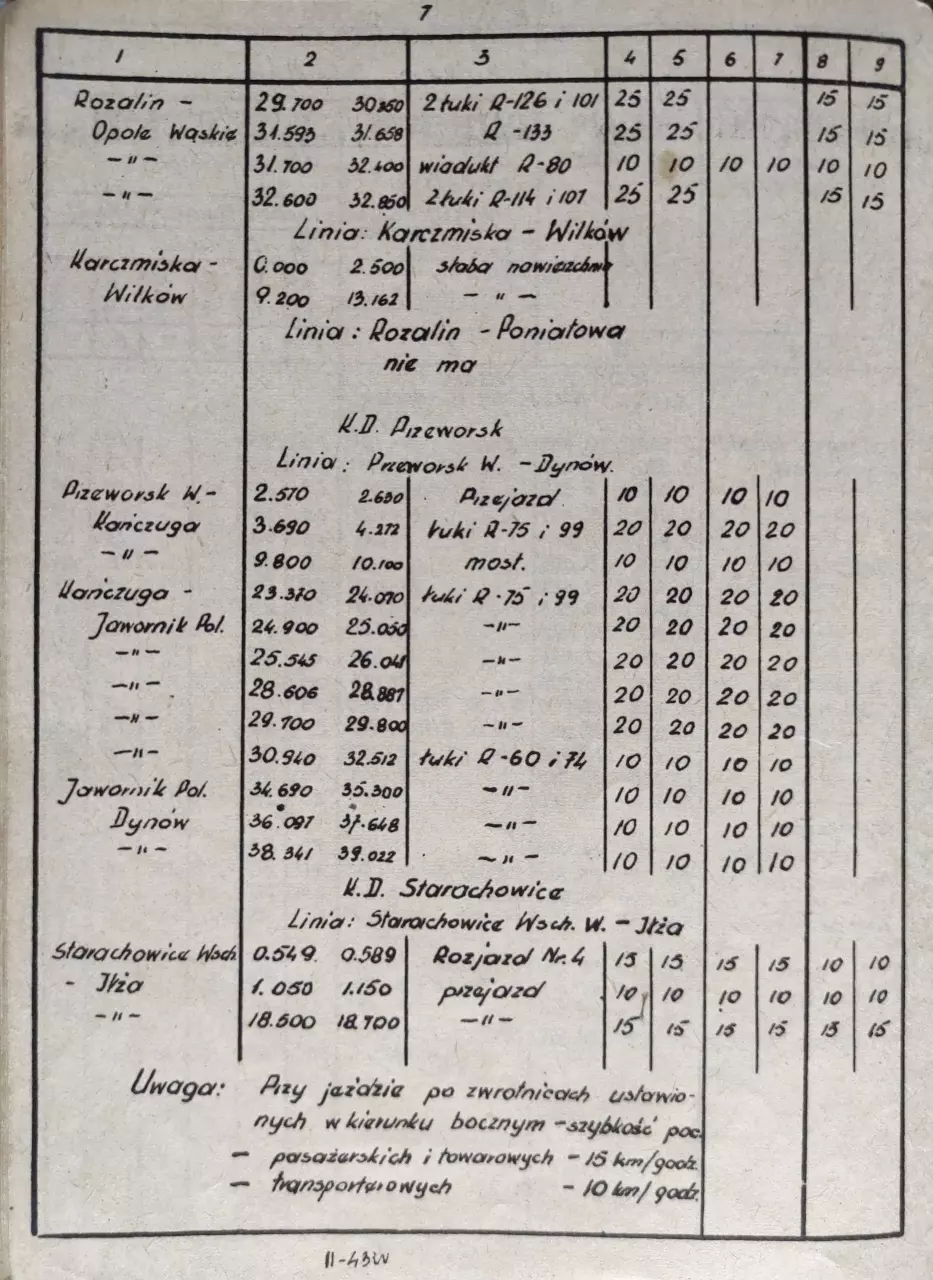 7
1 2 3 4 5 6 7 8 9
Rozalin - 29.700 30.150 2 łuki R-126 i 101 25 25 15 15
Opole Wąskie 31.593 31.658 R-133 25 25 15 15
-"- 31.700 32.400 wiadukt R-80 10 10 10 10 10 10
-"- 32.600 32.850 2 łuki R-114 i 107 25 25 15 15
Linia: Karczmiska - Wilków
Karczmiska - 0.000 2.500 słaba nawierzchnia
Wilków 9.200 13.162 -"-
Linia: Rozalin - Poniatowa
nie ma
K.D. Przeworsk
Linia: Przeworsk W. - Dynów.
Przeworsk W.- 2.570 2.630 Przejazd 10 10 10 10
Kańczuga 3.690 4.272 łuki R-75 i 99 20 20 20 20
-"- 9.800 10.100 most. 10 10 10 10
Kańczuga - 23.370 24.070 łuki R-75 i 99 20 20 20 20
Jawornik Pol. 24.900 25.050 -"- 20 20 20 20
-"- 25.545 26.041 -"- 20 20 20 20
-"- 28.606 28.887 -"- 20 20 20 20
-"- 29.700 29.800 -"- 20 20 20 20
-"- 30.940 32.512 łuki R-60 i 74 10 10 10 10
Jawornik Pol. 34.690 35.300 -"- 10 10 10 10
Dynów 36.097 37.648 -"- 10 10 10 10
-"- 38.341 39.022 -"- 10 10 10 10
K.D. Starachowice
Linia: Starachowice Wsch. W. - Iłża
Starachowice Wsch. 0.549 0.589 Rozjazd Nr. 4 15 15 15 15 10 10
- Iłża 1.050 1.150 przejazd 10 10 10 10 10 10
-"- 18.500 18.700 -"- 15 15 15 15 15 15
Uwaga: Przy jeździe po zwrotnicach ustawio-
nych w kierunku bocznym - szybkość poc.
- pasażerskich i towarowych - 15 km/godz.
- transporterowych - 10 km/godz.